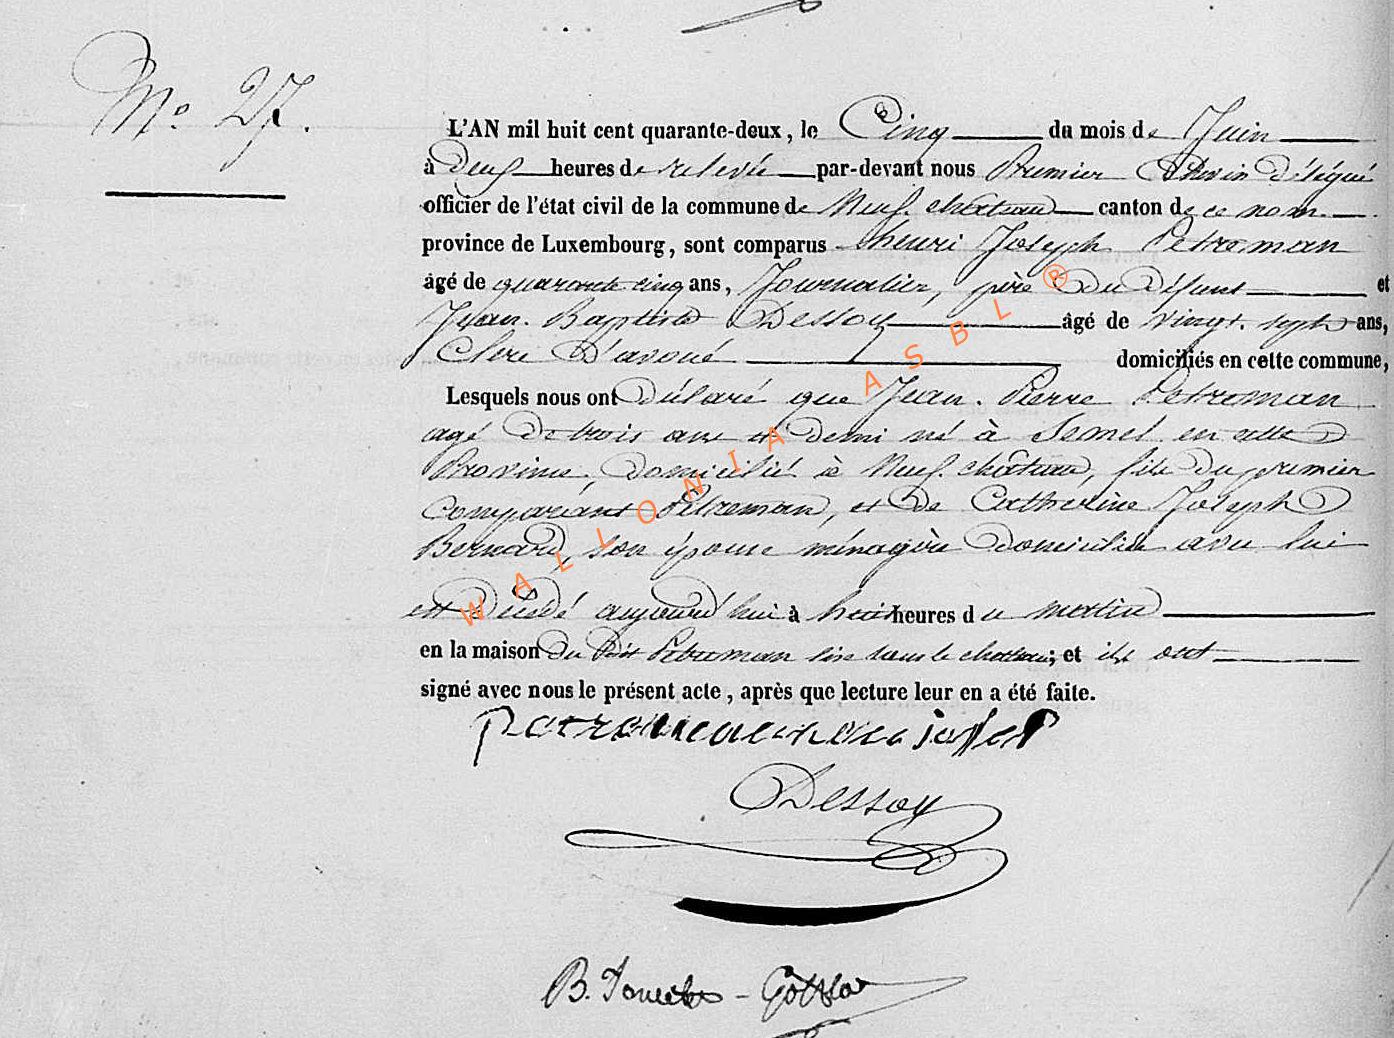 No 27.
L'AN mil huit cent quarante-deux, le Cinq du mois de Juin
à Deux heures de relevée par-devant nous Premier Echevin délégué
officier de l'état civil de la commune de Neufchâteau canton de ce nom.
province de Luxembourg, sont comparus henri Joseph Petreman
âgé de quarante cinq ans, Journalier, père du défunt et
Jean-Baptiste Dessoy âgé de vingt-sept ans,
Clerc D'avoué domiciliés en cette commune,
Lesquels nous ont déclaré que Jean-Pierre Petreman
agé de trois ans et demi né à Semel en cette
Province, domicilié à Neufchâteau, fils du premier
comparant Petreman, et de Catherine Joseph
Bernard, son épouse ménagère domiciliée avec lui
est décédé aujourd'hui à huit heures du matin
en la maison du dit Petreman sise sous le chateau; et ils ont
signé avec nous le présent acte, après que lecture leur en a été faite.
Dessoy
WALLONIA ASBL ®